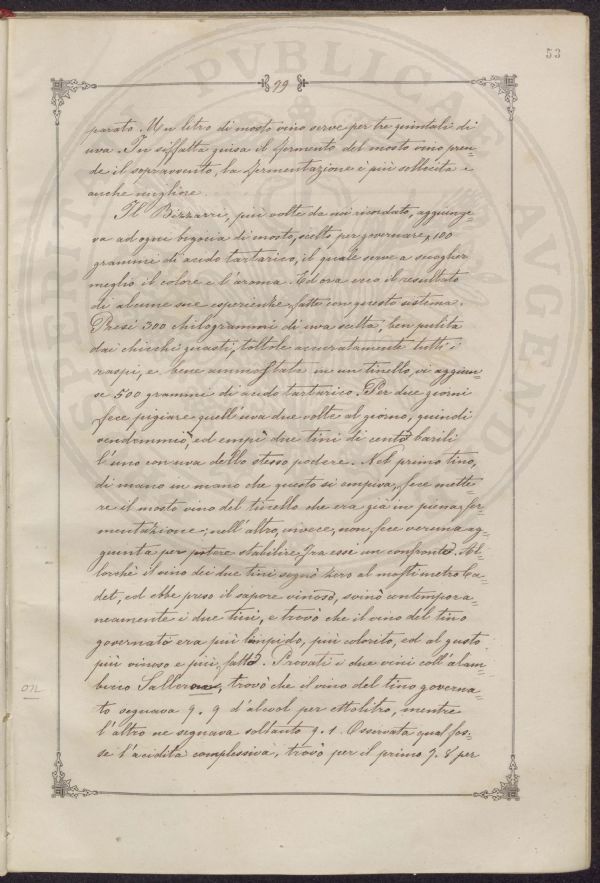 53
99
parato. Un litro di mosto vino serve per tre quintali di
uva. In siffatta guisa il fermento del mosto vino pren=
de il sopravvento, la fermentazione è più sollecita e
anche migliore.
Il Bizzarri, più volte da noi ricordato, aggiunge=
va ad ogni bigoncia di mosto, scelto per governare, 100
grammi di acido tartarico, il quale serve a sciogliere
meglio il colore e l'aroma. Ed ora ecco il resultato
di alcune sue esperienze, fatte con questo sistema.
Presi 300 chilogrammi di uva scelta, ben pulita
dai chicchi guasti, toltole accuratamente tutti i
raspi, e bene ammostata in un tinello, vi aggiun=
se 500 grammi di acido tartarico. Per due giorni
fece pigiare quell'uva due volte al giorno, quindi
vendemmiò, ed empì due tini di cento barili
l'uno con uva dello stesso podere. Nel primo tino,
di mano in mano che questo si empiva, fece mette=
re il mosto vino del tinello che era già in piena fer=
mentazione; nell'altro, invece, non fece veruna ag=
giunta per potere stabilire fra essi un confronto. Al=
lorchè il vino dei due tini segnò zero al mostimetro Ca=
det, ed ebbe preso il sapore vinoso, svinò contempora=
neamente i due tini, e trovò che il vino del tino
governato era più limpido, più colorito, ed al gusto
più vinoso e più fatto. Provati i due vini coll'alam=
bicco Salleron, trovò che il vino del tino governa=
to segnava 9.9 d'alcool per ettolitro, mentre
l'altro ne segnava soltanto 9.1. Osservata qual fos=
se l'acidità complessiva, trovò per il primo 7.8 per
SPERIMENTI PUBLICAE AUGENDAE